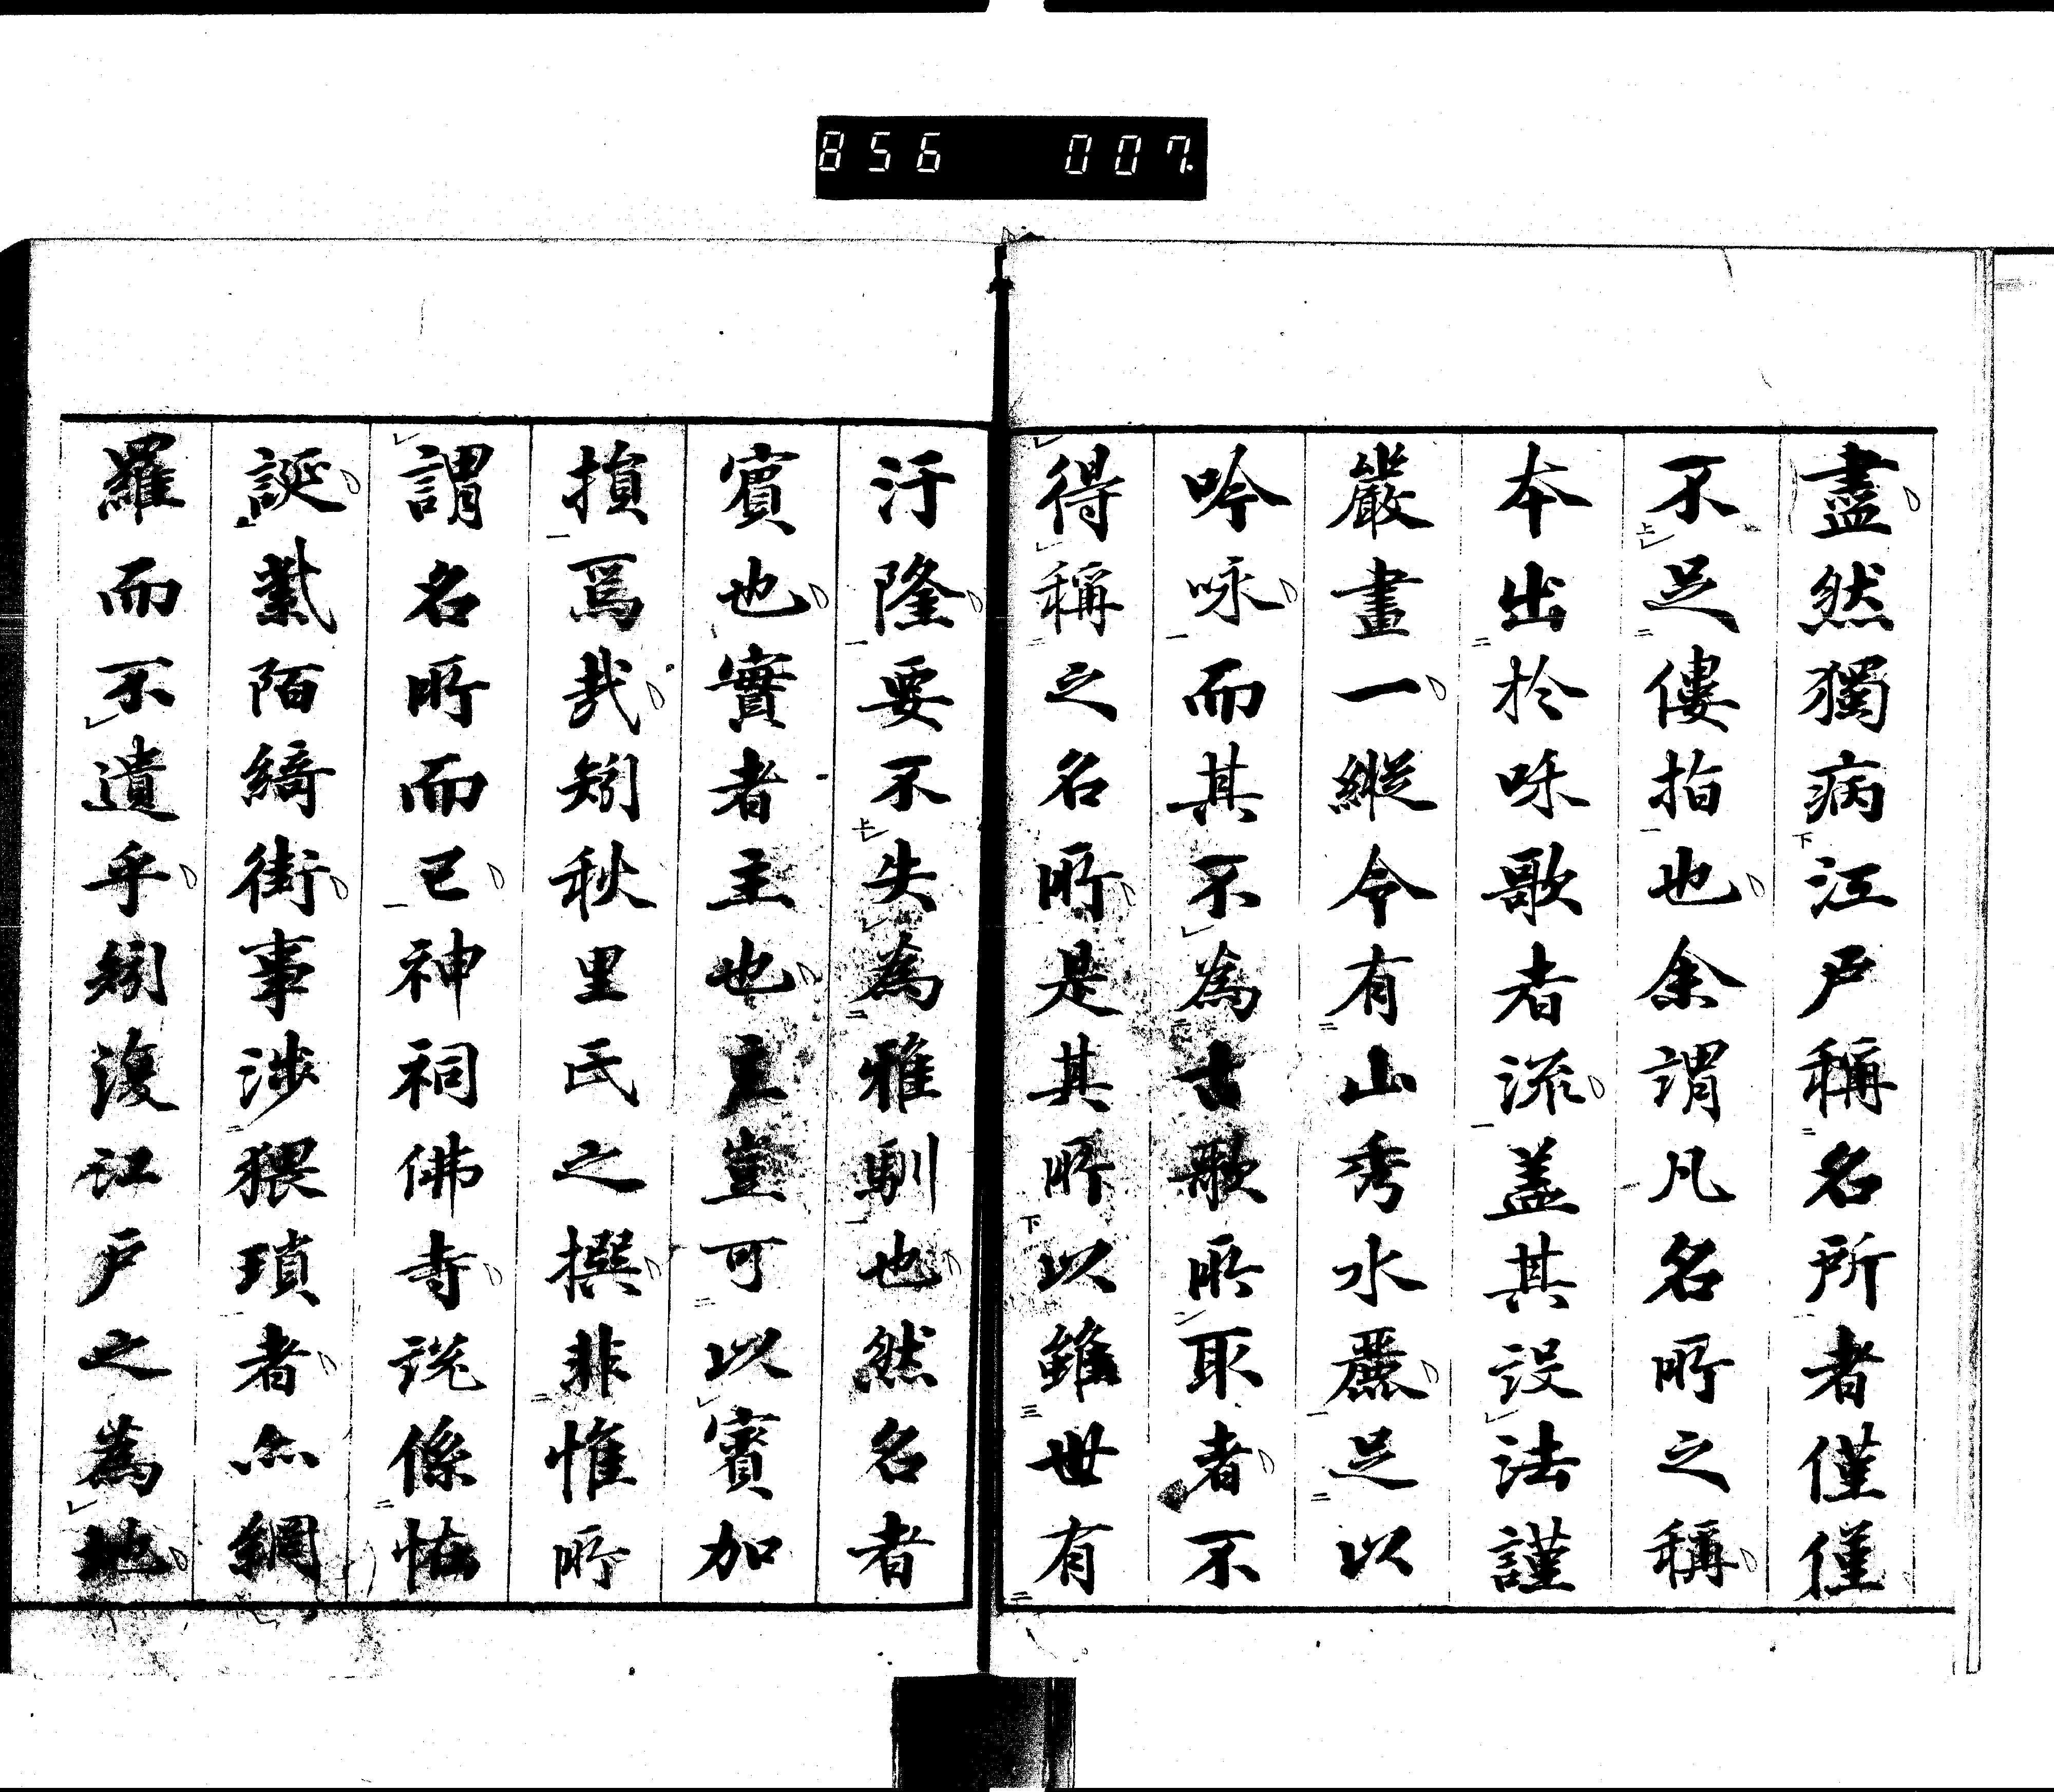 856 007.
盡然獨病江戸稱名所者僅僅
不足僂指也余謂凡名所之稱
本出於咏歌者流蓋其設法謹
嚴畫一縱令有山秀水麗足以
吟咏而其不為古歌所取者不
得稱之名所是其所以雖世有
汙隆要不失為雅馴也然名者
賓也實者主也主豈可以賓加
損焉哉矧秋里氏之撰非惟所
謂名所而已神祠佛寺說係怪
誕紫陌綺街事涉猥瑣者亦網
羅而不遺乎矧復江戸之為地